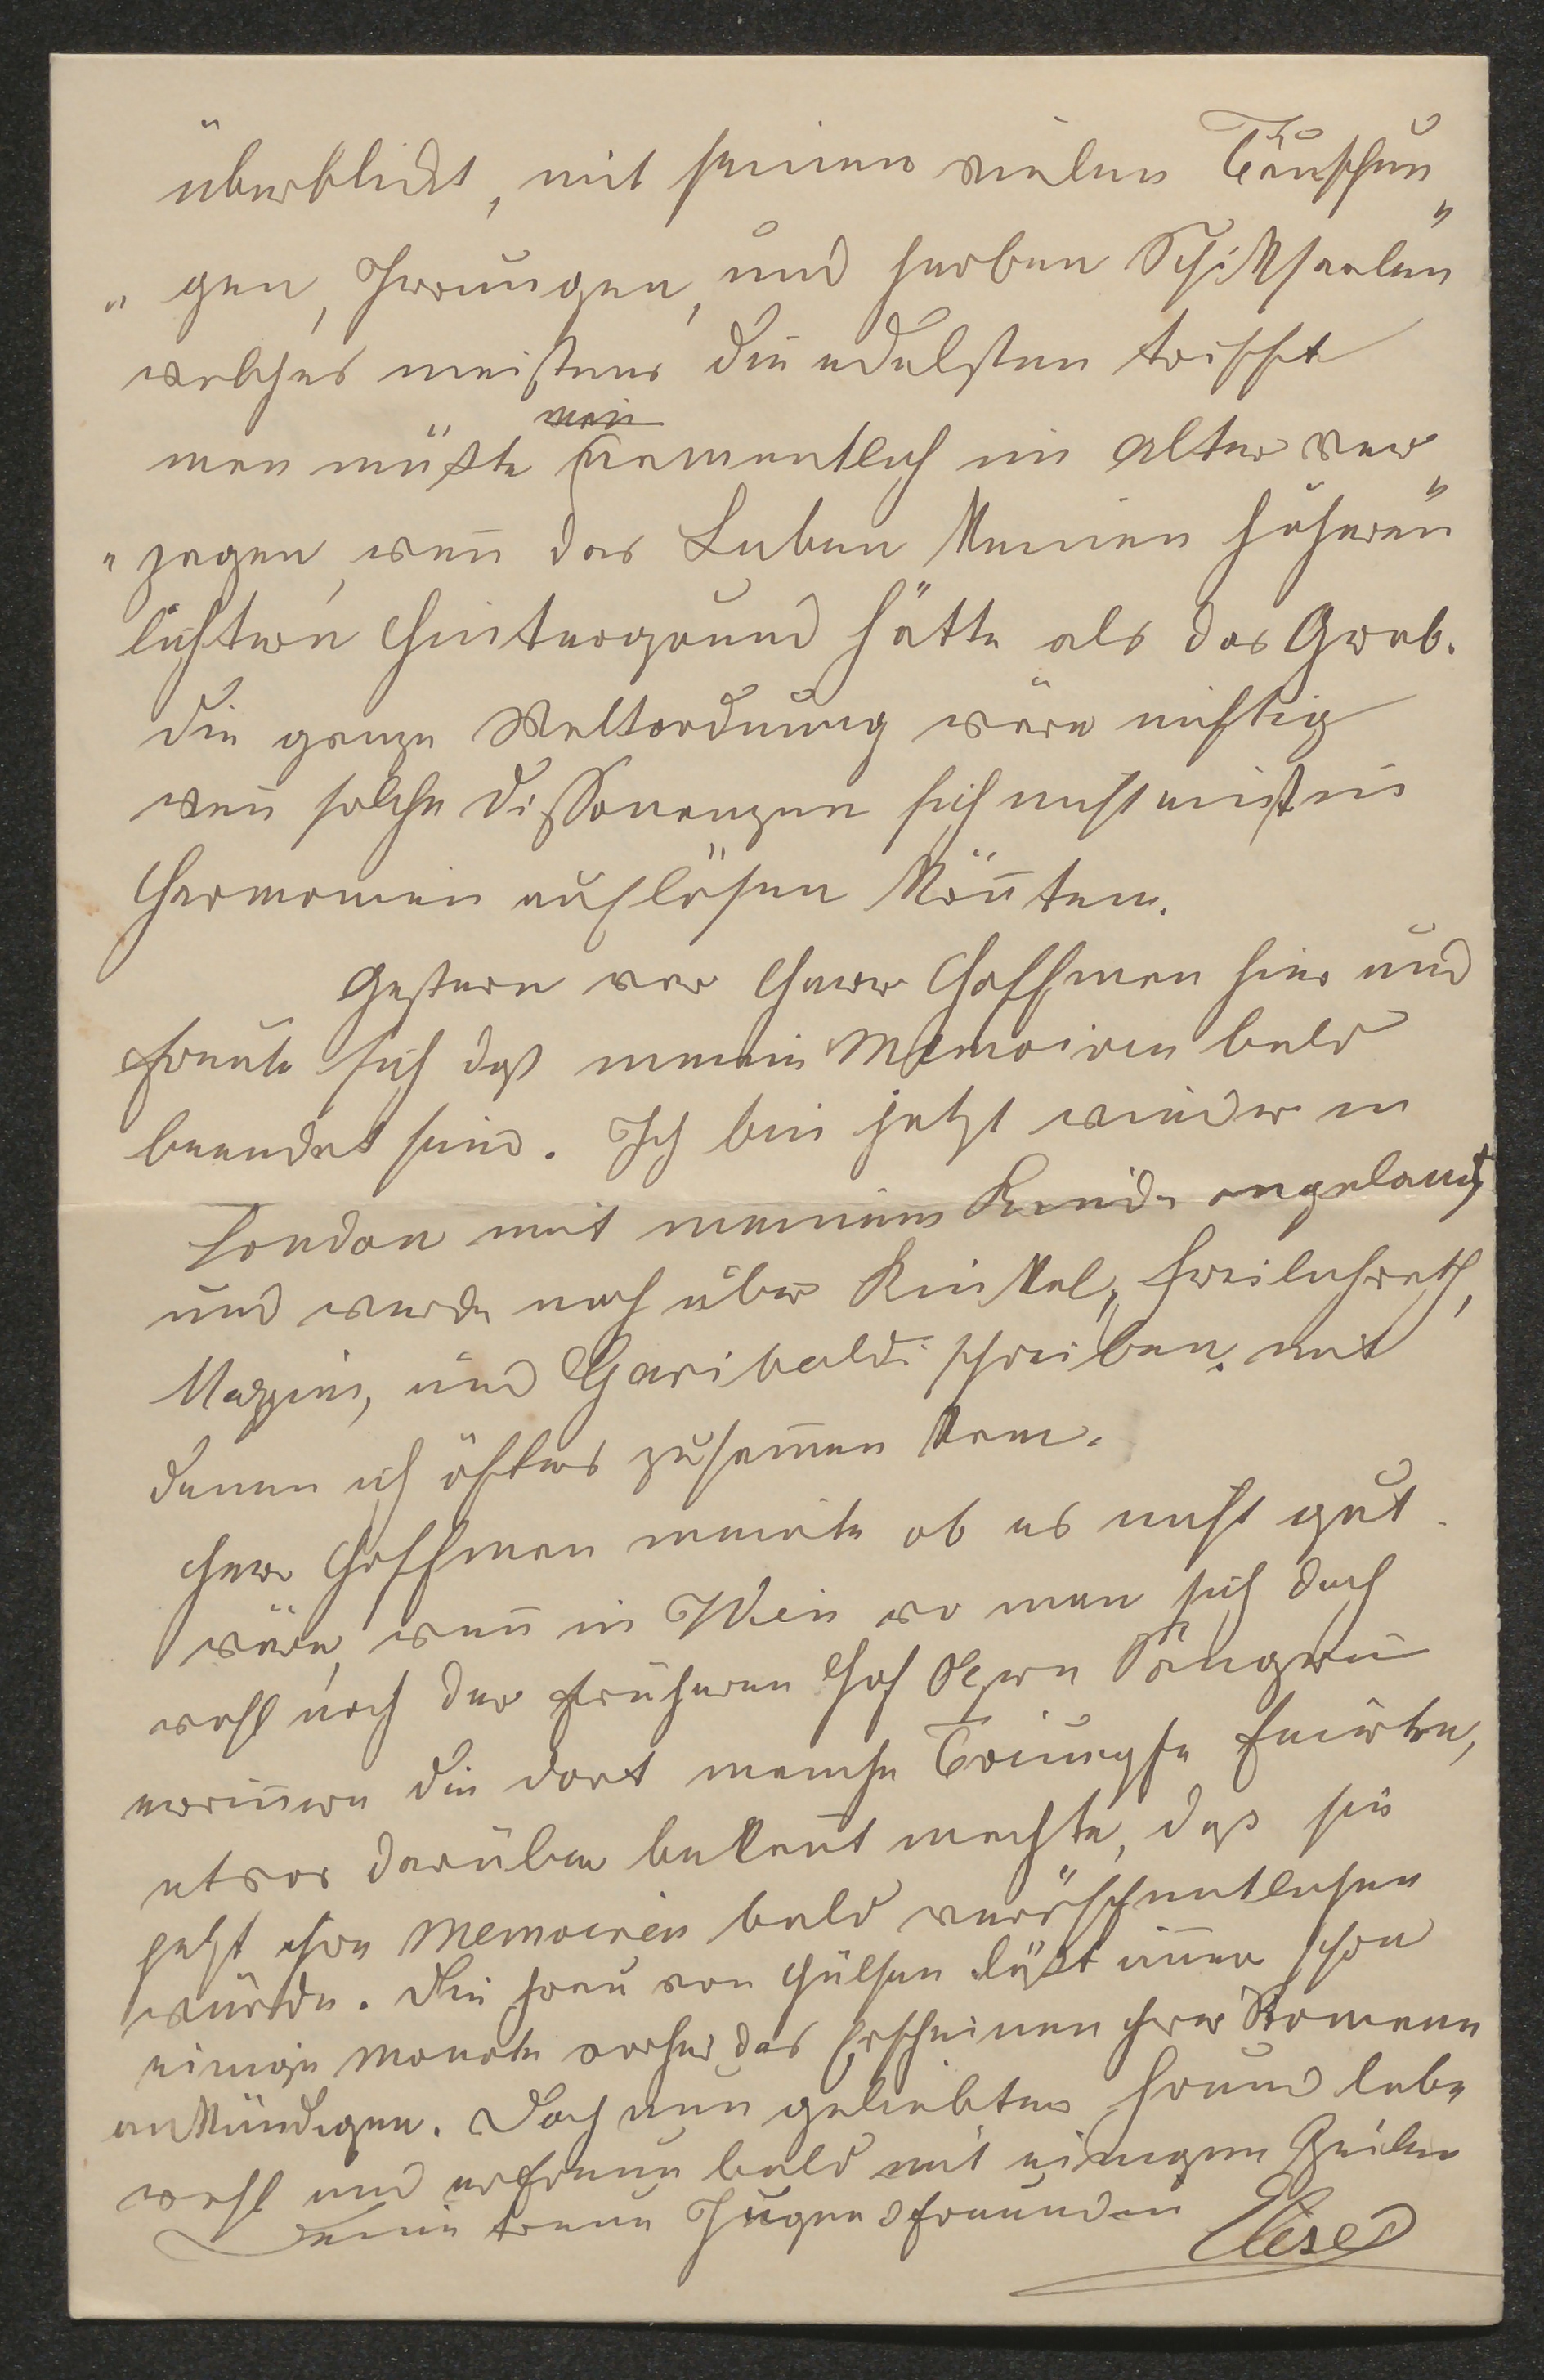 überblickt, mit seinen vielen Täuschun„
„gen, Irrungen, und herben Schiksaalen
welches meistens die edelsten trifft
man müßte namentlich im Alter ver„
„zagen, wen̅ das Leben keinen höheren
lichtern Hintergrund hätte als das Grab.
die ganze Weltordnung wäre nichtig
wen̅ solche Dissonanzen sich nicht einst in
Harmonien auflösen kön̅ten.
Gestern war Herr Hoffman hier und
freute sich daß meine Memoiren bald
beendet sind. Ich bin jetzt wieder in
London mit meinem Kinde angelangt
und werde noch über Kinkel, Freiligrath,
Mazzini, und Garibaldi schreiben, mit
denen ich öfters zusam̅en kam.
Herr Hoffman meinte ob es nicht gut
wäre, wen̅ in Wien wo man sich doch
wohl noch der früheren Hof Opern Sängerin
erin̅ern die dort manche Triumpfe feierte,
etwas darüber bekan̅t machte, daß sie
jetzt ihre Memoiren bald veröffentlichen
würde. Die Frau von Hülsen läßt im̅er schon
einige Monate vorher das Erscheinen ihrer Romane
ankündigen. Doch nun geliebter Freund lebe
wohl und erfreue bald mit einigen Zeilen
Deine treue Jugendfreundin Elise